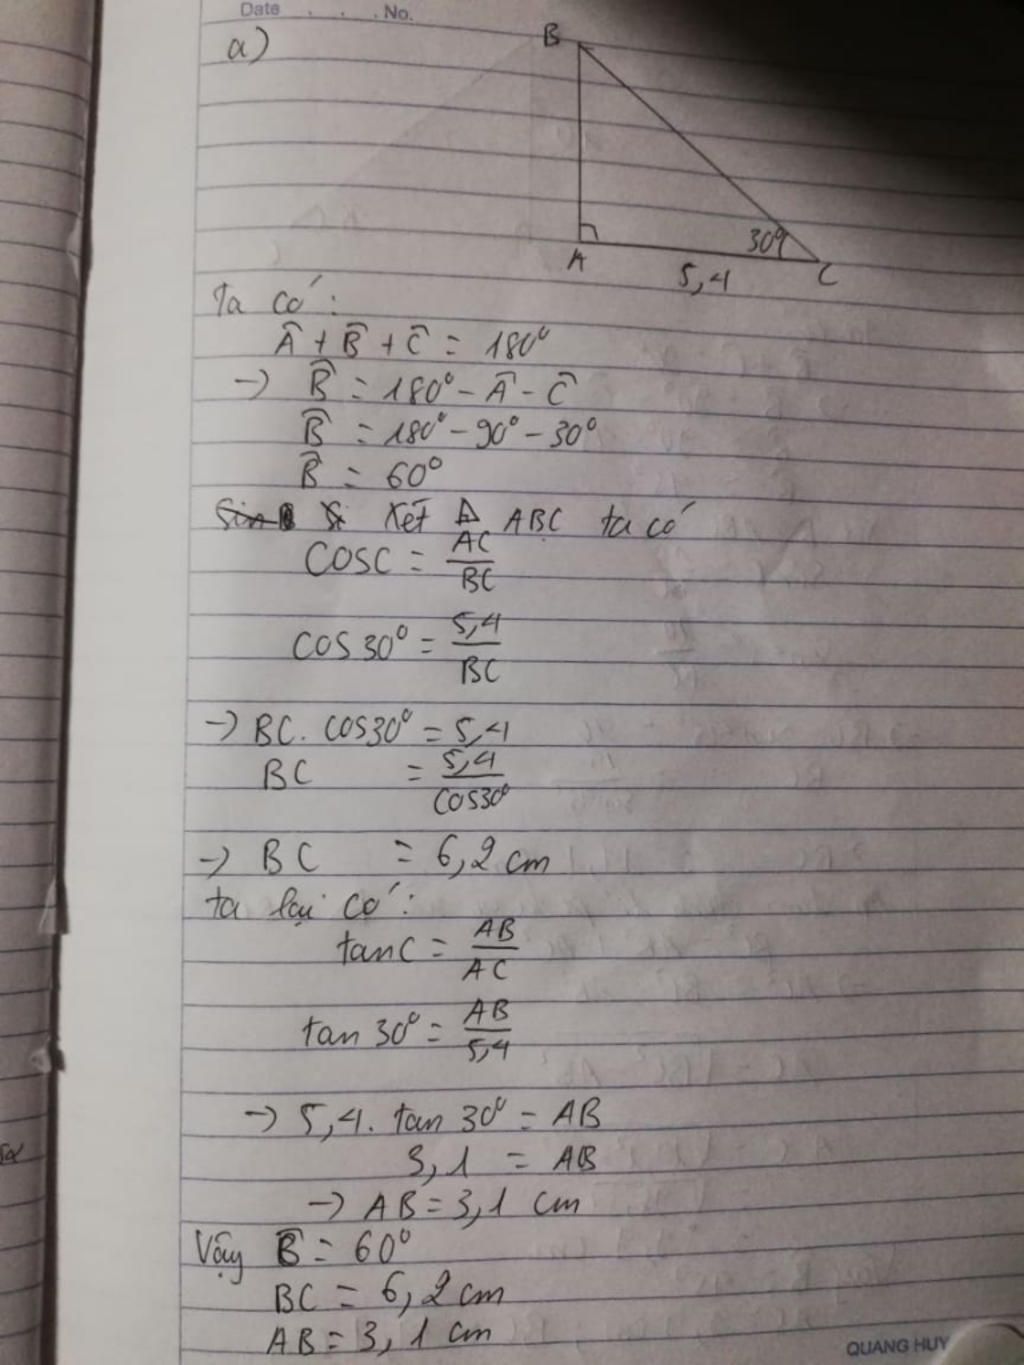 Date . . . . No.
a)
B
A
30°
C
5,4
Ta có:
Â + B̂ + Ĉ = 180°
→ B̂ = 180° - Â - Ĉ
B̂ = 180° - 90° - 30°
B̂ = 60°
Xét ⊿ ABC ta có
COSC = AC/BC
COS 30° = 5,4/BC
→ BC. COS30° = 5,4
BC = 5,4/COS30°
→ BC = 6,2 cm
ta lại có:
tanC = AB/AC
tan 30° = AB/5,4
→ 5,4. tan 30° = AB
3,1 = AB
→ AB = 3,1 cm
Vậy B̂ = 60°
BC = 6,2 cm
AB = 3,1 cm
QUANG HUY